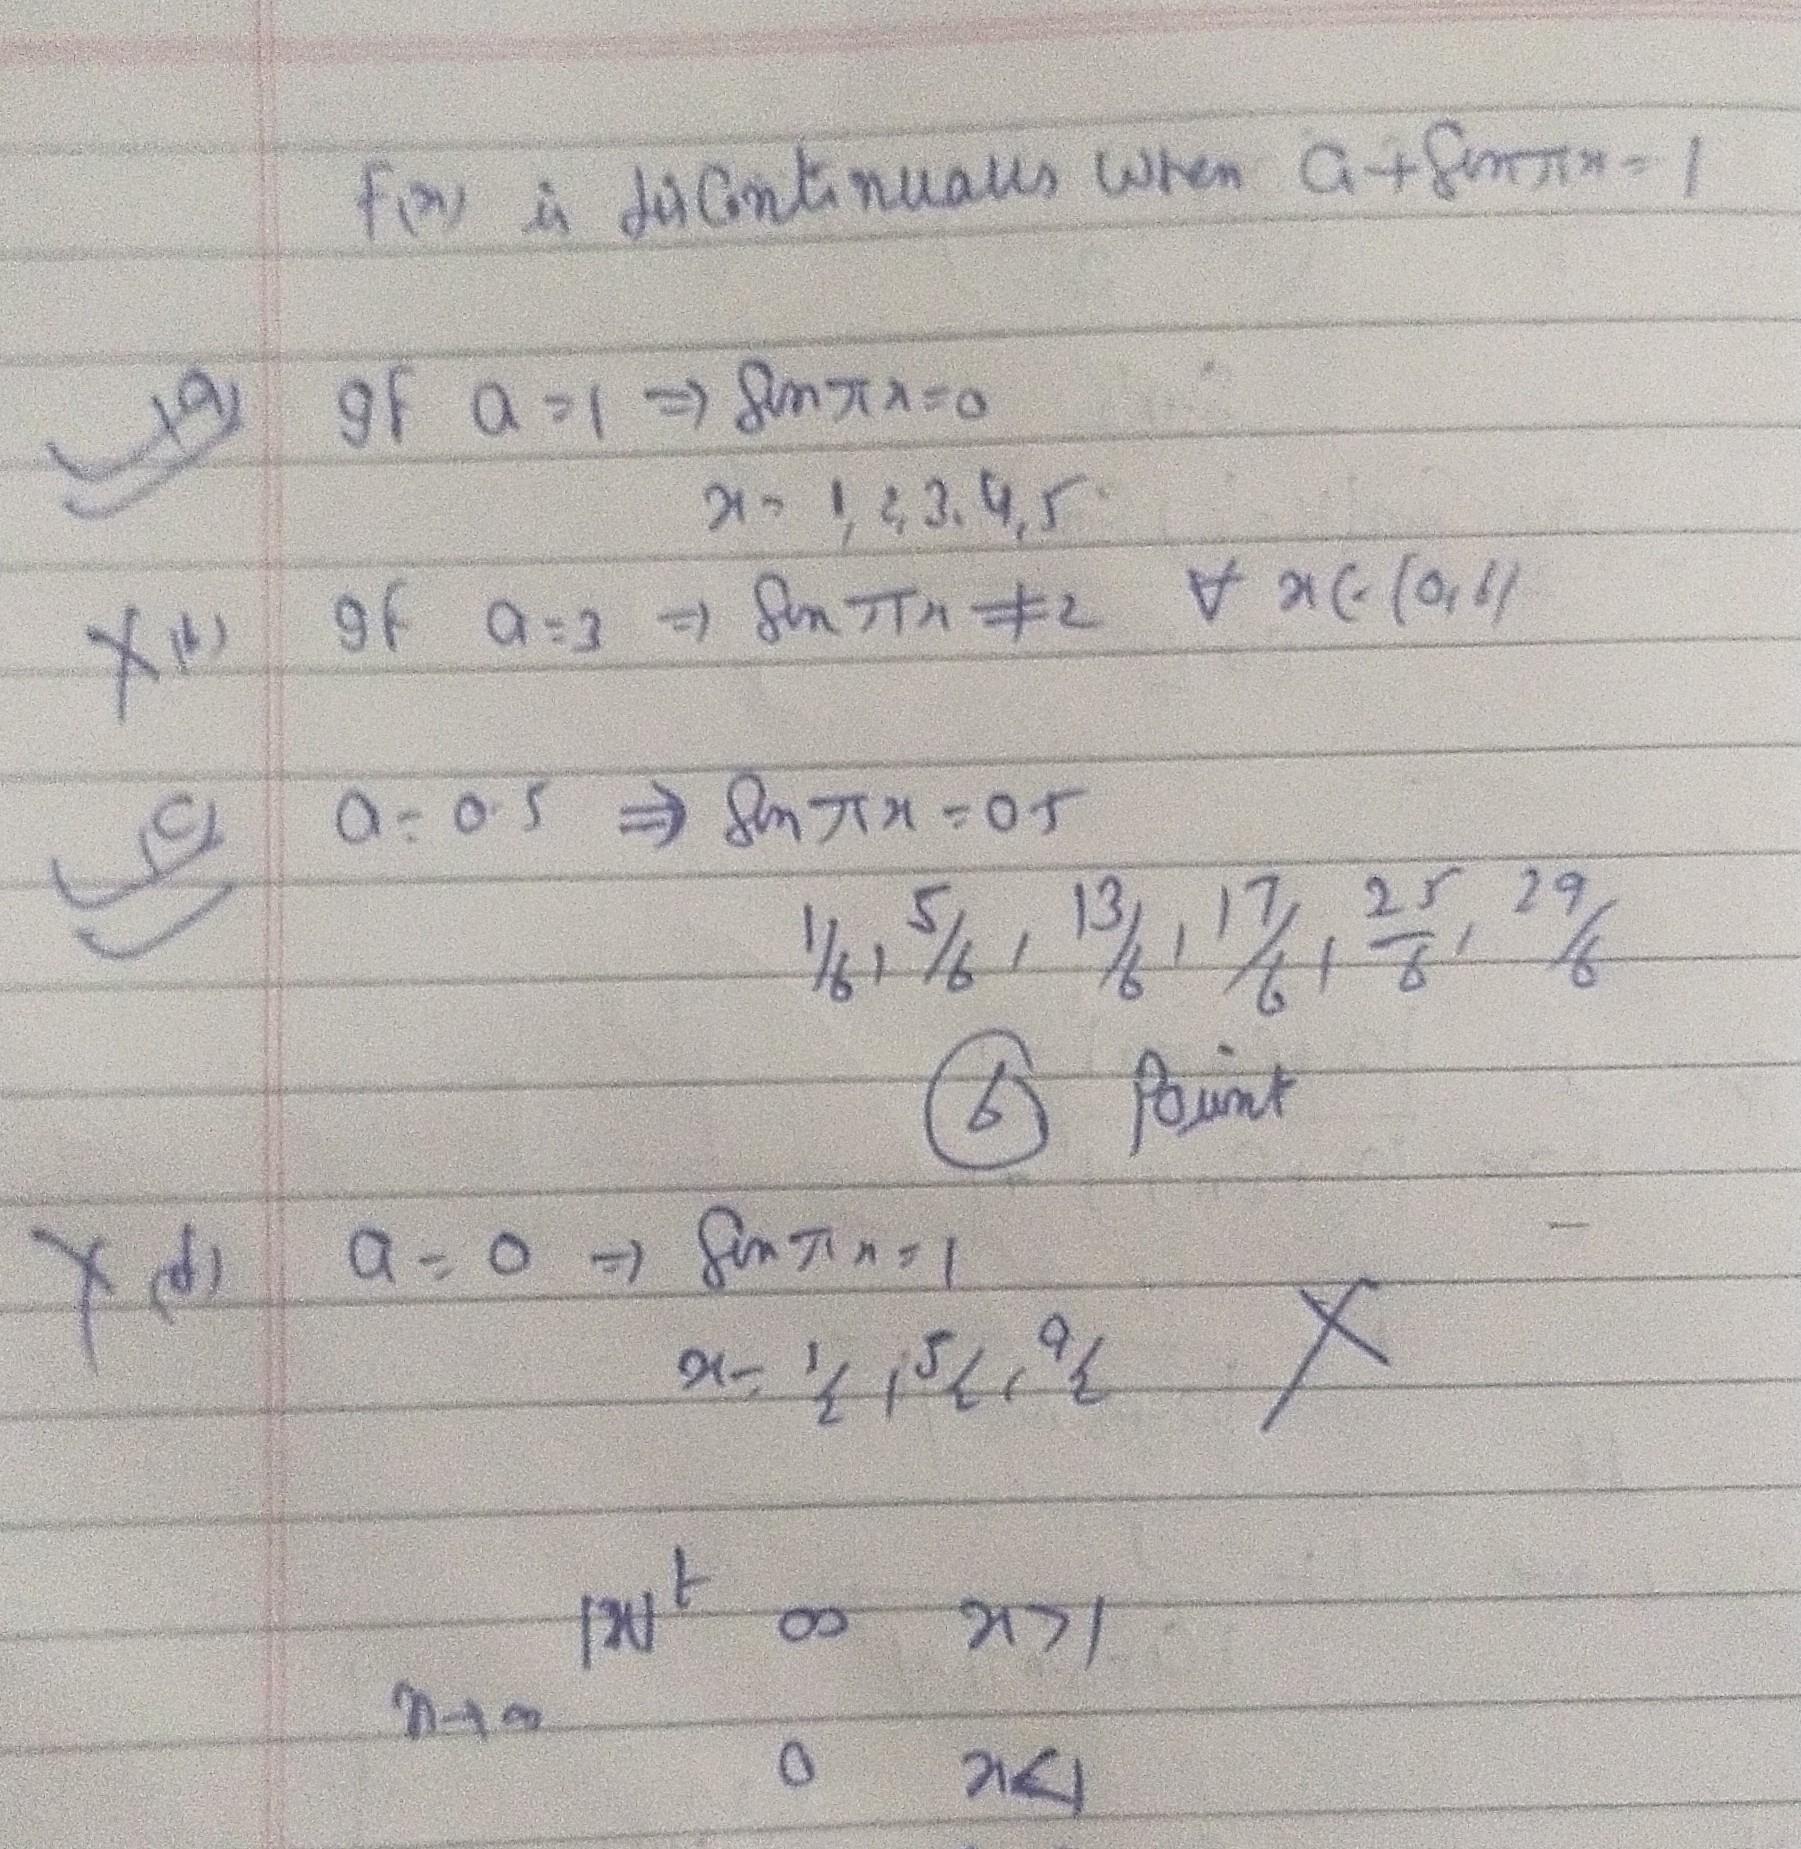 f(x) is discontinuaus when a + sin πx = 1
(a) If a = 1 ⇒ sin πx = 0
x = 1, 2, 3, 4, 5
X (b) If a = 3 ⇒ sin πx ≠ 2 ∀ x ∈ (0, 6)
(c) a = 0.5 ⇒ sin πx = 0.5
1/6, 5/6, 13/6, 17/6, 25/6, 29/6
6 Point
X (d) a = 0 ⇒ sin πx = 1
x = 1/2, 5/2, 9/2 X
|x|^t ∞ x > 1
n → ∞
0 x < 1